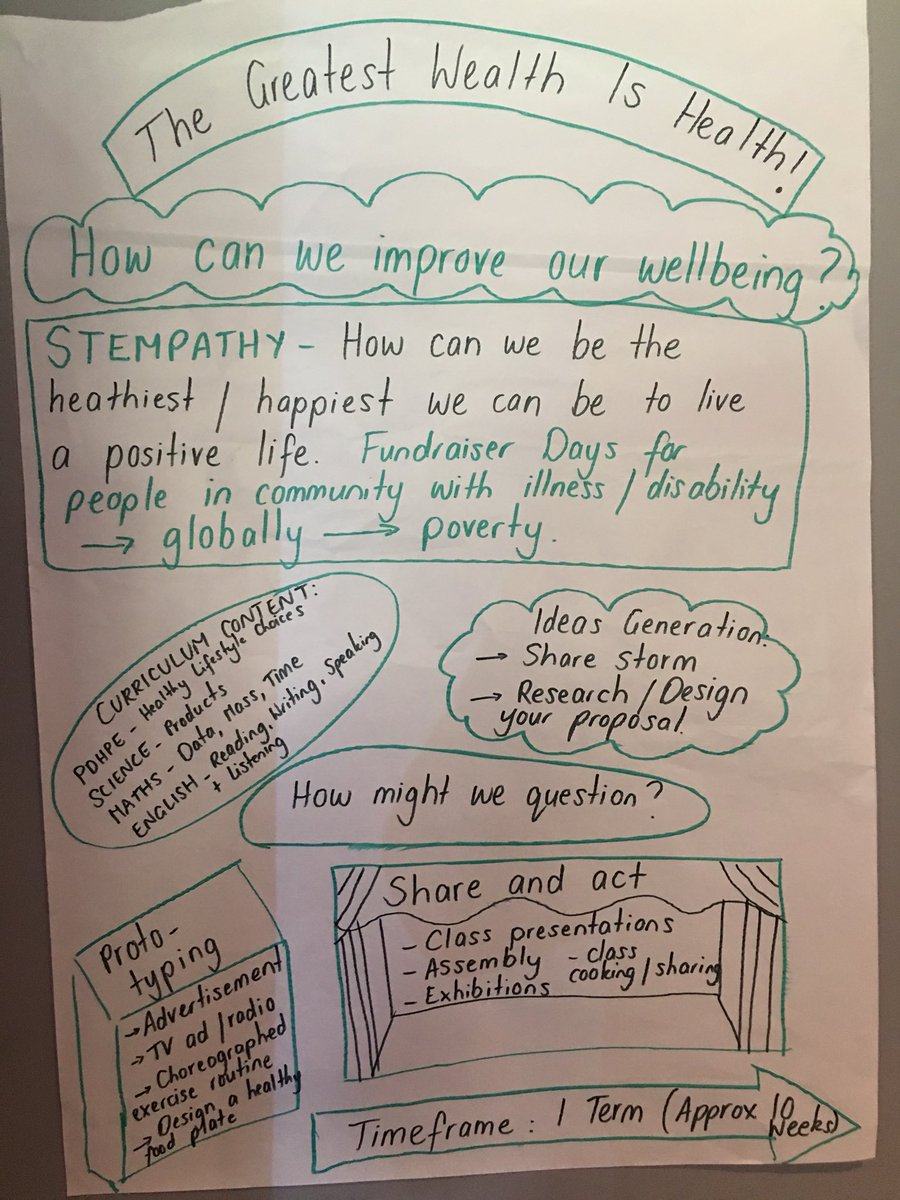 The Greatest Wealth Is Health!
How can we improve our wellbeing?
STEMPATHY - How can we be the
heathiest / happiest we can be to live
a positive life. Fundraiser Days for
people in community with illness / disability
→ globally → poverty.
CURRICULUM CONTENT:
PDHPE - Healthy Lifestyle choices
SCIENCE - Products
MATHS - Data, Mass, Time
ENGLISH - Reading, Writing, Speaking
+ Listening
Ideas Generation:
→ Share storm
→ Research / Design
your proposal.
How might we question?
Proto-
typing
→ Advertisement
→ TV ad / radio
→ Choreographed
exercise routine
→ Design a healthy
food plate
Share and act
- Class presentations
- Assembly - class
cooking / sharing
- Exhibitions
Timeframe : 1 Term (Approx 10
Weeks)